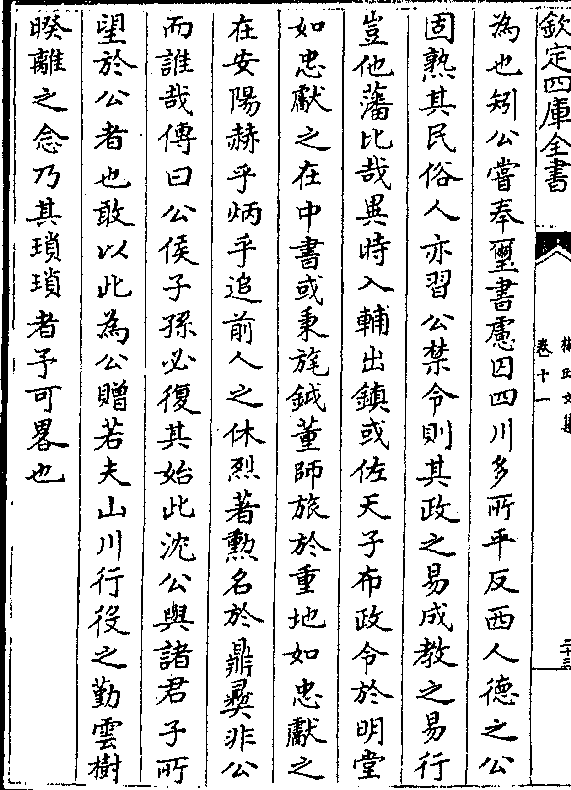 欽定四庫全書
卷十一
為也矧公嘗奉璽書慮囚四川多所平反西人德之公
固熟其民俗人亦習公禁令則其政之易成教之易行
豈他藩比哉異時入輔出鎮或佐天子布政令於明堂
如忠獻之在中書或秉旄鉞董師旅於重地如忠獻之
在安陽赫乎炳乎追前人之休烈著勲名於鼎彛非公
而誰哉傳曰公侯子孫必復其始此沈公與諸君子所
望於公者也敢以此為公贈若夫山川行役之勤雲樹
暌離之念乃其瑣瑣者予可畧也